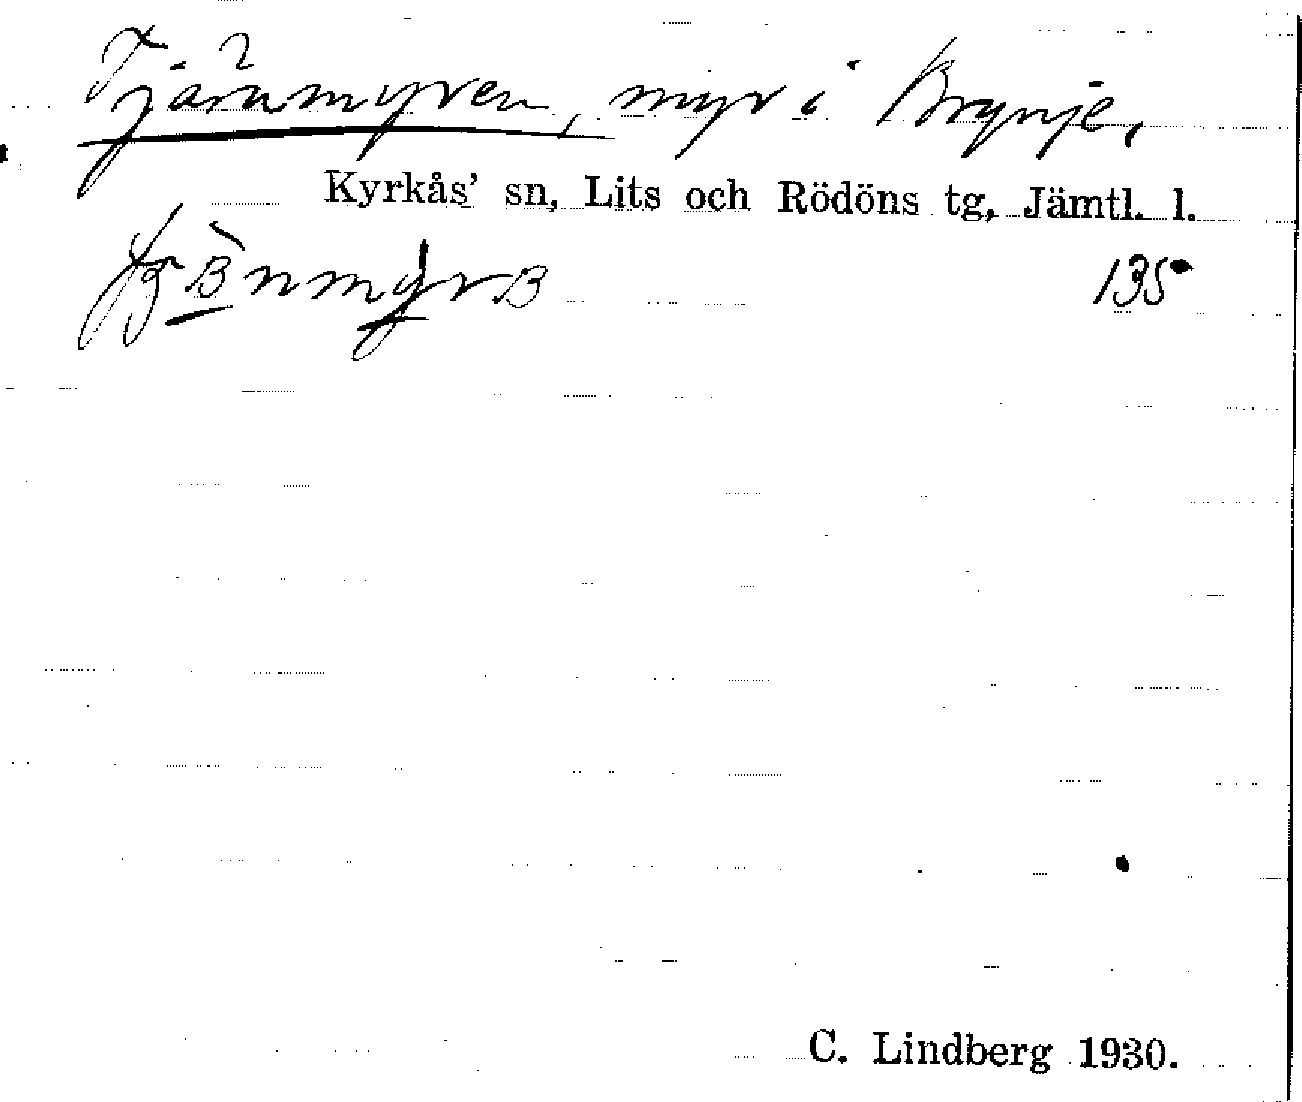 Tjärnmyren, myr i Brynje,
Kyrkås' sn, Lits och Rödöns tg, Jämtl. l.
135
C. Lindberg 1930.